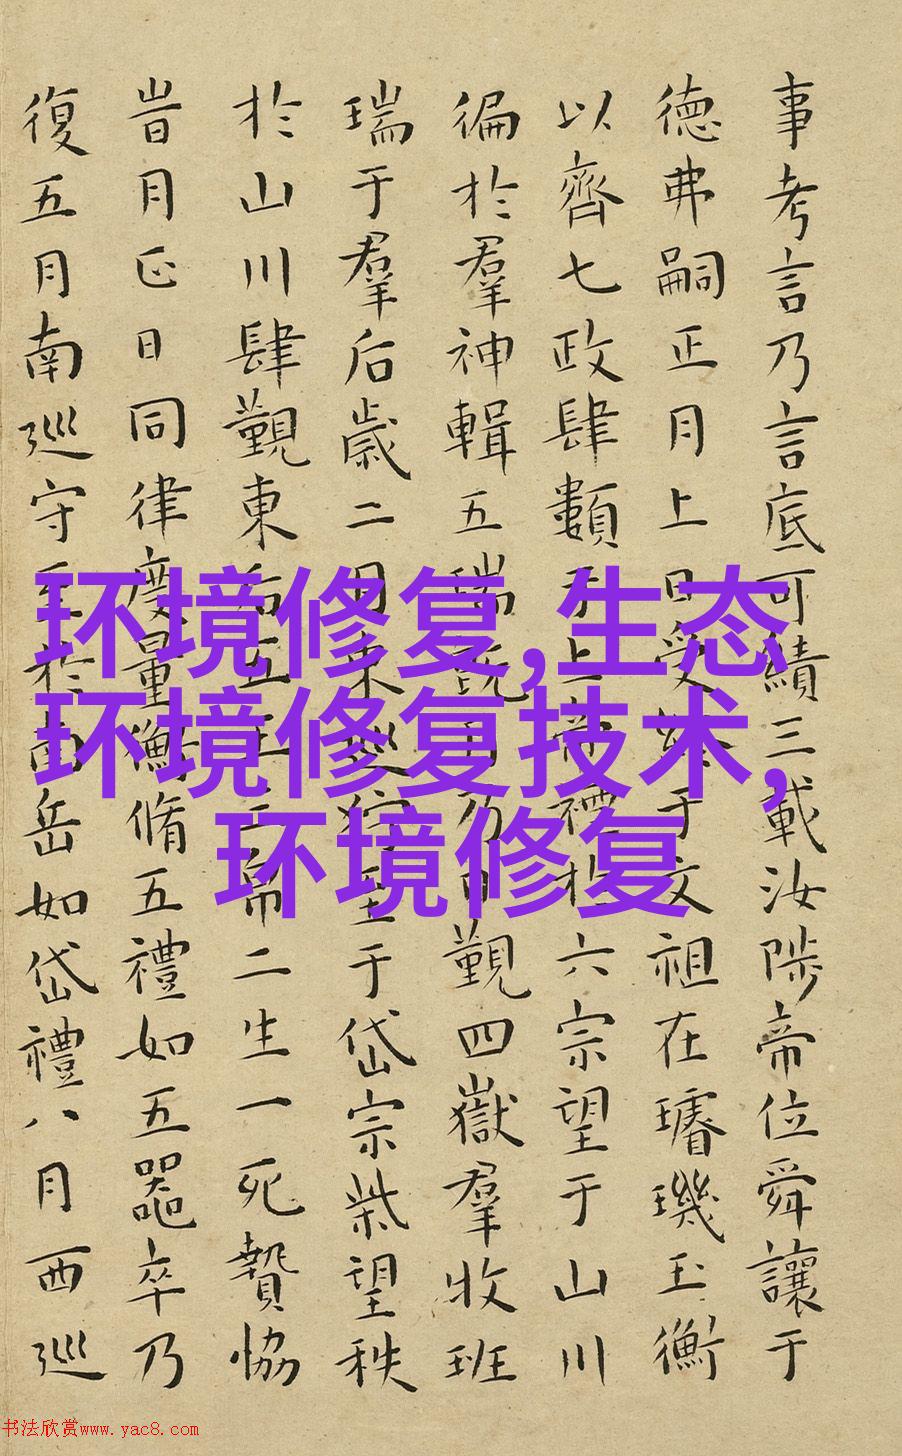 事考言乃言底可績三載汝陟帝位舜讓于
德弗嗣正月上日受終于文祖在璿璣玉衡
以齊七政肆類于上帝禋於六宗望于山川
徧於羣神輯五瑞既月乃日覲四嶽羣牧班
瑞于羣后歲二月東巡狩至于岱宗柴望秩
於山川肆覲東后五玉三帛二生一死贄協
旹月正日同律度量衡脩五禮如五器卒乃
復五月南巡守至於南岳如岱禮八月西巡
环境修复,生态
环境修复技术,
环境修复
书法欣赏www.yac8.com